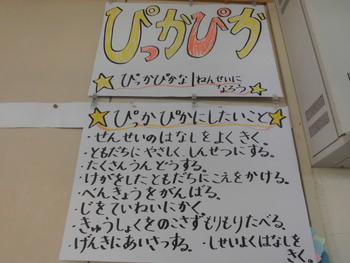 ぴっかぴか
ぴっかぴかな1ねんせいに
なろう
ぴっかぴかにしたいこと
・せんせいのはなしをよくきく。
・ともだちにやさしくしんせつにする。
・たくさんうんどうする。
・けがをしたともだちにこえをかける。
・べんきょうをがんばる。
・じをていねいにかく
・きゅうしょくをのこさずもりもりたべる。
・げんきにあいさつする。・しせいよくはなしを
きく。